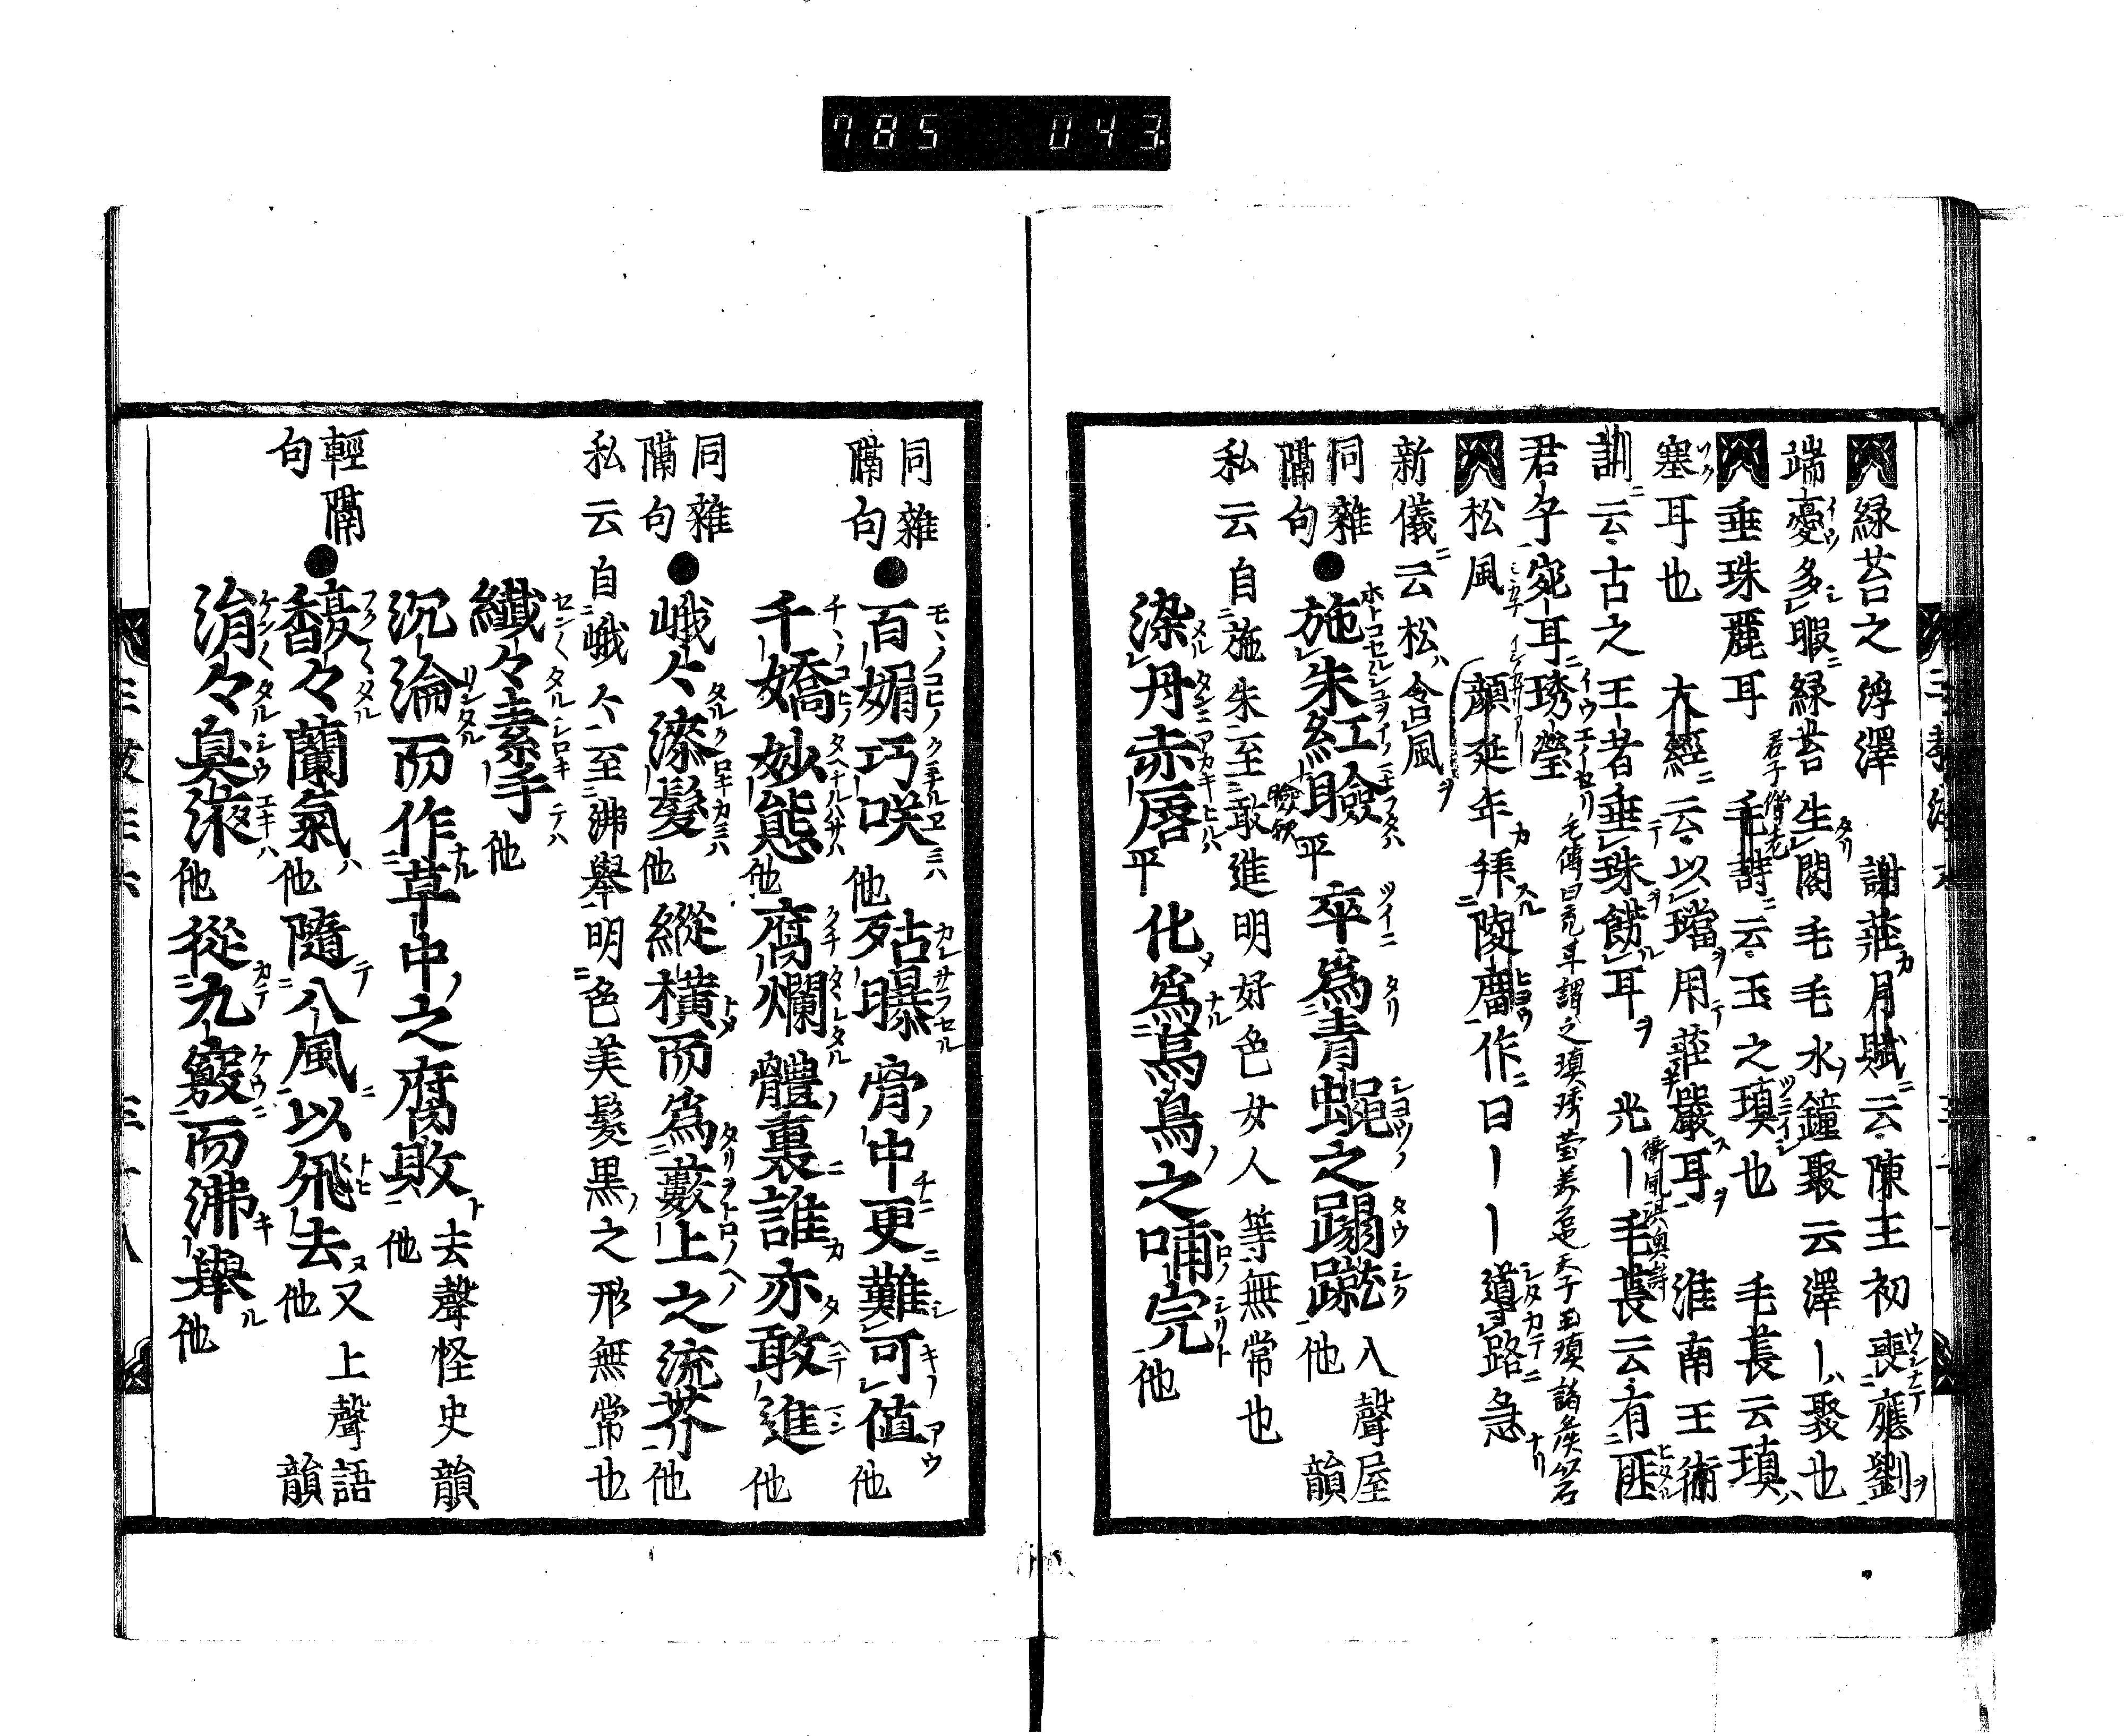 785 043
緑苔之浮澤 謝莊月賦云陳王初喪應劉
端憂多暇緑苔生閣毛毛水鐘聚云澤ーハ聚也
垂珠麗耳 毛詩云玉之瑱也 毛萇云瑱ハ
塞耳也 大經云以璫用莊嚴耳 淮南王術
訓云古之王者垂珠餝耳 光ー毛萇云有匪
君子宛耳琇瑩
松風 顔延年拜陵廟作曰ーー道路急
新儀云松ハ含風
同雜隔句●施朱紅臉平 卒爲青蠅之蹋蹴他 入聲屋韻
染丹赤脣平 化爲烏鳥之哺完他
私云自施朱至敢進明好色女人等無常也
同雜隔句●百媚巧咲他 殆曝骨中更難可値他
千嬌妙態他 腐爛體裏誰亦敢進他
同雜隔句●峨々漆髮他 縱横而爲藪上之流芥他
私云自峨々至沸擧明色美髮黒之形無常也
纖々素手他
沉淪而作草中之腐敗他 去聲怪史韻
輕隔句●馥々蘭氣他 隨八風以飛去他 又上聲語韻
涓々臭液他 從九竅而沸擧他